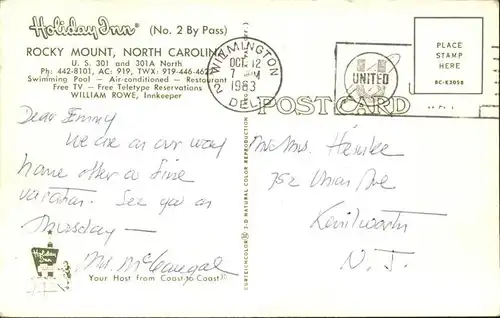 Holiday Inn® (No. 2 By Pass)
ROCKY MOUNT, NORTH CAROLINA
U. S. 301 and 301A North
Ph: 442-8101, AC: 919, TWX: 919-446-4622
Swimming Pool — Air-conditioned — Restaurant
Free TV — Free Teletype Reservations
WILLIAM ROWE, Innkeeper
WILMINGTON
OCT 12
7 PM
1963
DEL.
2
UNITED
PLACE
STAMP
HERE
BC-K3058
POST CARD
Dear
We are on our way
home after a fine
vacation. See you on
Thursday —
Mrs.
Holiday
Inn
Your Host from Coast to Coast
CURTEICHCOLOR® 3-D NATURAL COLOR REPRODUCTION
Mrs.
752 Union Ave
Kenilworth
N. J.